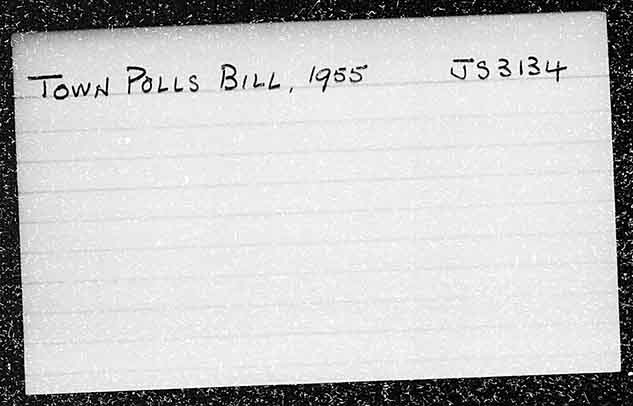 TOWN POLLS BILL, 1955 JS3134